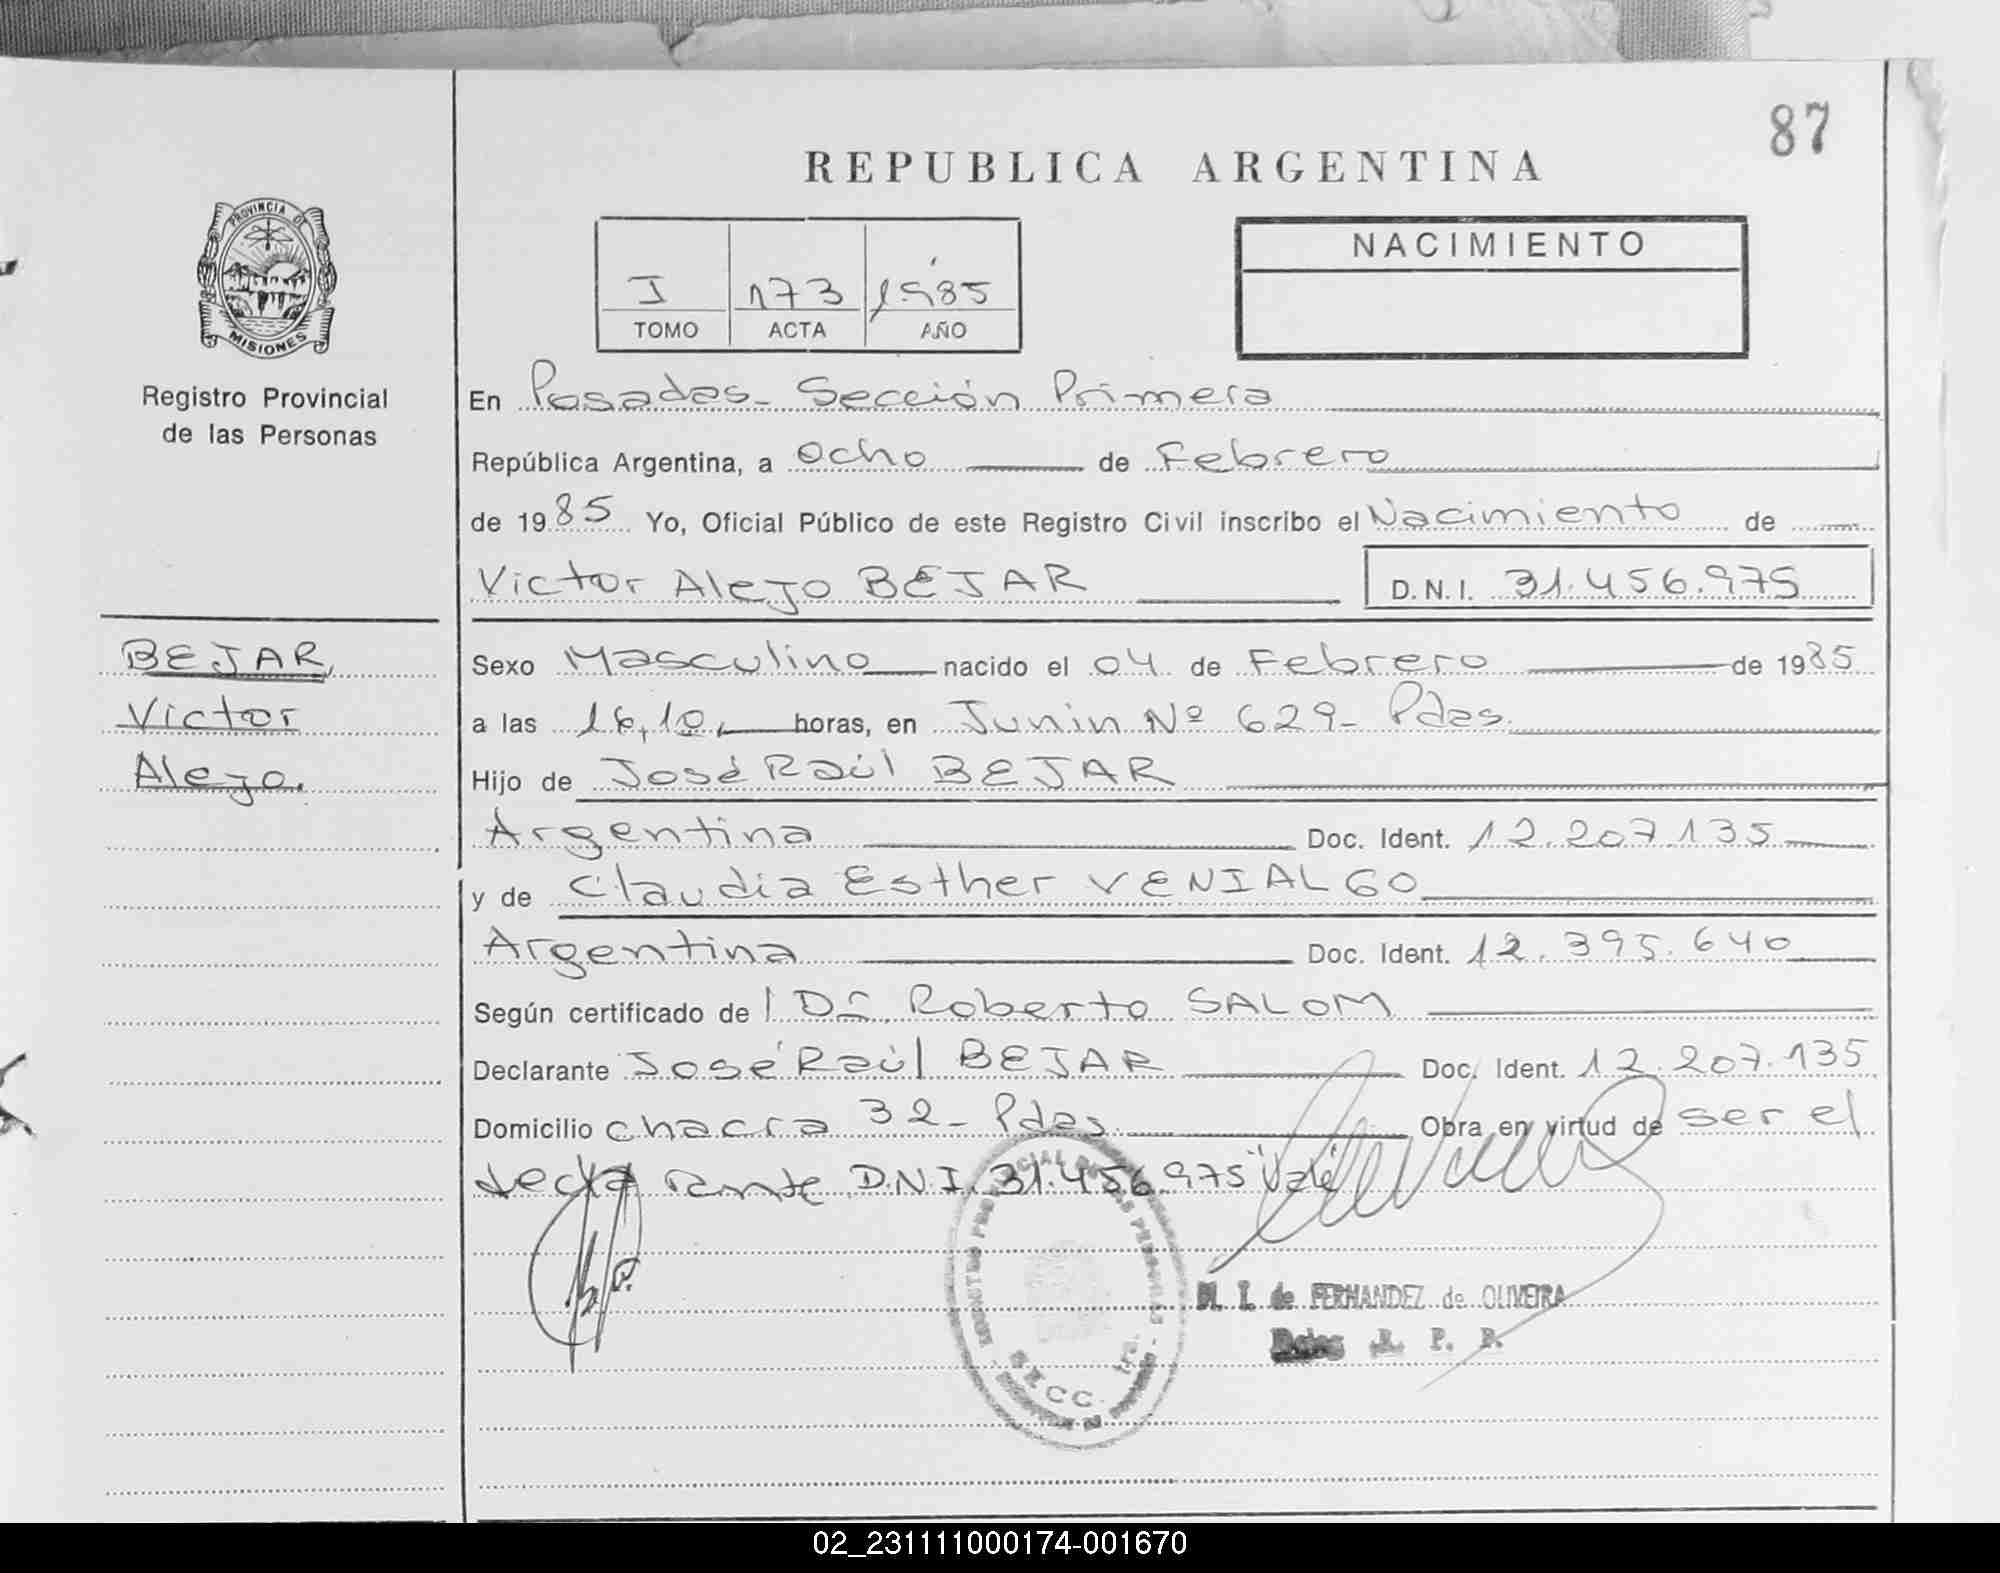 87
REPUBLICA ARGENTINA
PROVINCIA DE
MISIONES
Registro Provincial
de las Personas
I 173 1985
TOMO ACTA AÑO
NACIMIENTO
En Posadas- Sección Primera
República Argentina, a ocho de Febrero
de 1985 Yo, Oficial Público de este Registro Civil inscribo el Nacimiento de
Victor Alejo BEJAR D.N.I. 31.456.975
BEJAR,
Victor
Alejo.
Sexo Masculino nacido el 04 de Febrero de 1985
a las 16,10, horas, en Junin Nº 629- Pdas.
Hijo de José Raúl BEJAR
Argentina Doc. Ident. 12.207.135
y de Claudia Esther VENIALGO
Argentina Doc. Ident. 12.395.640
Según certificado de l Dr. Roberto SALOM
Declarante José Raúl BEJAR Doc. Ident. 12.207.135
Domicilio chacra 32- Pdas. Obra en virtud de ser el
declarante D.N.I. 31.456.975 "Vale
M. I. de FERNANDEZ de OLIVEIRA
R. P. P.
SECC. 1ra.
02_231111000174-001670